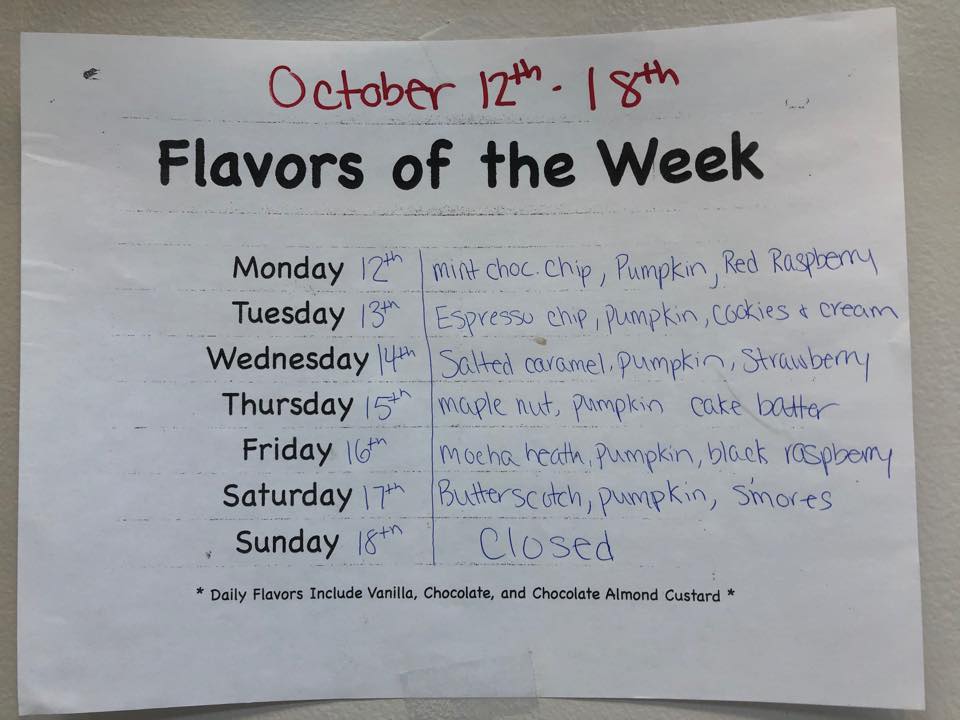 October 12th - 18th
Flavors of the Week
Monday 12th mint choc. chip, Pumpkin, Red Raspberry
Tuesday 13th Espresso chip, pumpkin, cookies & cream
Wednesday 14th Salted caramel, pumpkin, Strawberry
Thursday 15th maple nut, pumpkin cake batter
Friday 16th mocha heath, pumpkin, black raspberry
Saturday 17th Butterscotch, pumpkin, s'mores
Sunday 18th Closed
* Daily Flavors Include Vanilla, Chocolate, and Chocolate Almond Custard *